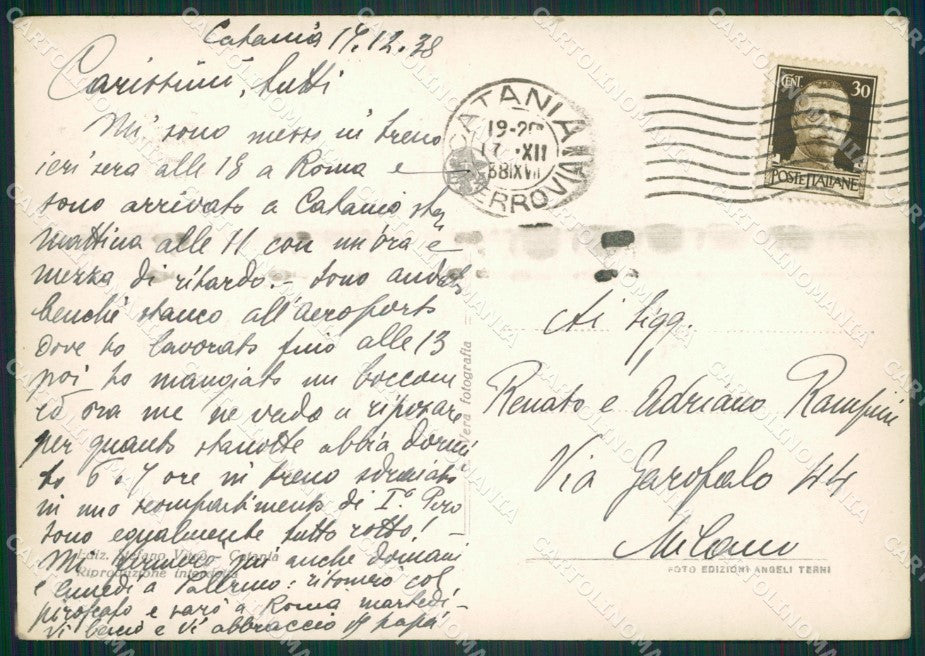 Catania 17.12.38
Carissimi tutti
Mi sono messo in treno
ieri sera alle 18 a Roma e
sono arrivato a Catania sta
mattina alle 11 con un'ora e
mezza di ritardo. - Sono andato
benché stanco all'aeroporto
dove ho lavorato fino alle 13
poi ho mangiato un boccone
ed ora me ne vado a riposare
per quanto stanotte abbia dormi
to 6.7 ore in treno sdraiato
in uno scompartimento di Iª. Pero
sono egualmente tutto rotto!
Mi fermerò qui anche domani
e lunedi a Palermo: ritornerò col
piroscafo e sarò a Roma martedi -
Vi bacio e vi abbraccio papà
Ediz. Stefano - Catania
Riproduzione Interdetta
Vera fotografia
CATANIA
19-20
17 XII
38 XVII
FERROVIA
CENT. 30
POSTE ITALIANE
Ai Sigg.
Renato e Adriano Rampini
Via Garofalo 44
Milano
FOTO EDIZIONI ANGELI TERNI
CARTOLINOMANIA